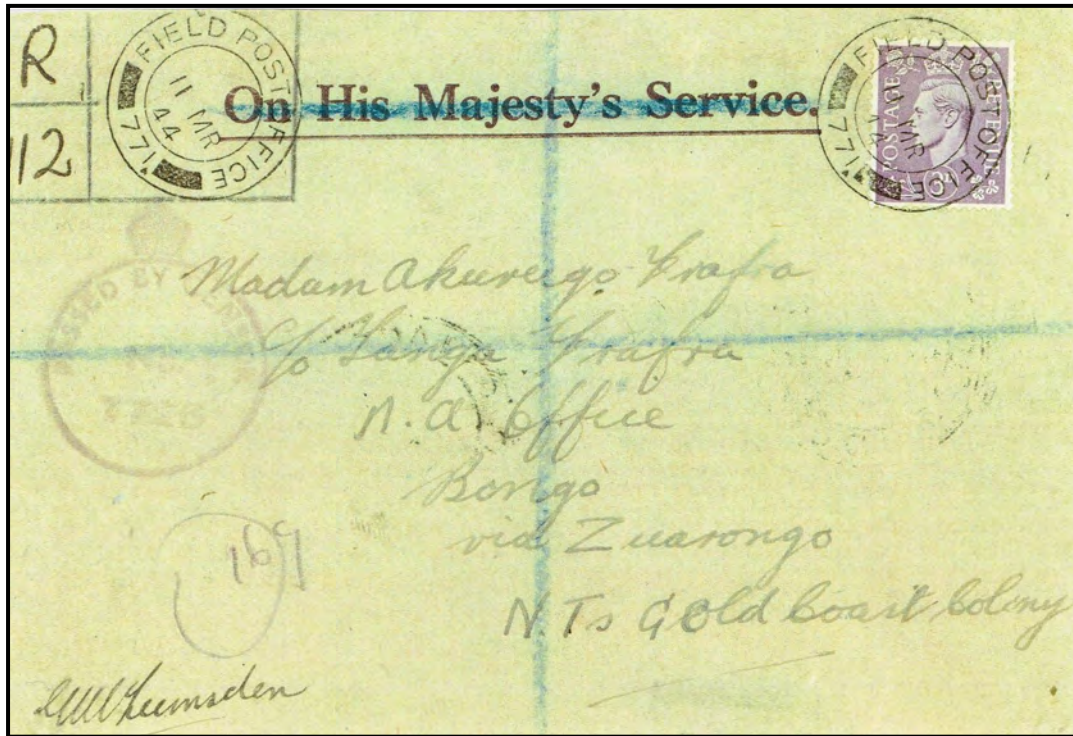 R
112
FIELD POST OFFICE
11 MR
44
771
On His Majesty's Service.
FIELD POST OFFICE
11 MR
44
771
POSTAGE REVENUE
3D
PASSED BY CENSOR
No.
Madam Akureigo Frafra
c/o Langa Frafra
N.A. Office
Bongo
via Zuarongo
N.Ts Gold Coast Colony
169
Lumsden